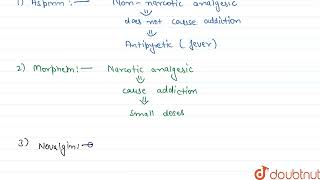 1) Aspirin :— Non-narcotic analgesic
⇓
does not cause addiction
⇓
Antipyretic (fever)
2) Morphem :— Narcotic analgesic
⇓
cause addiction
⇓
Small doses
3) Novalgin :—
doubtnut